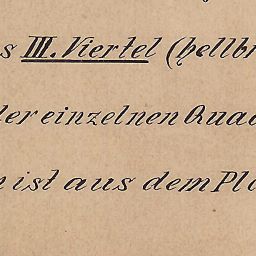 s III. Viertel (hellbr
der einzelnen Quad
n ist aus dem Pla